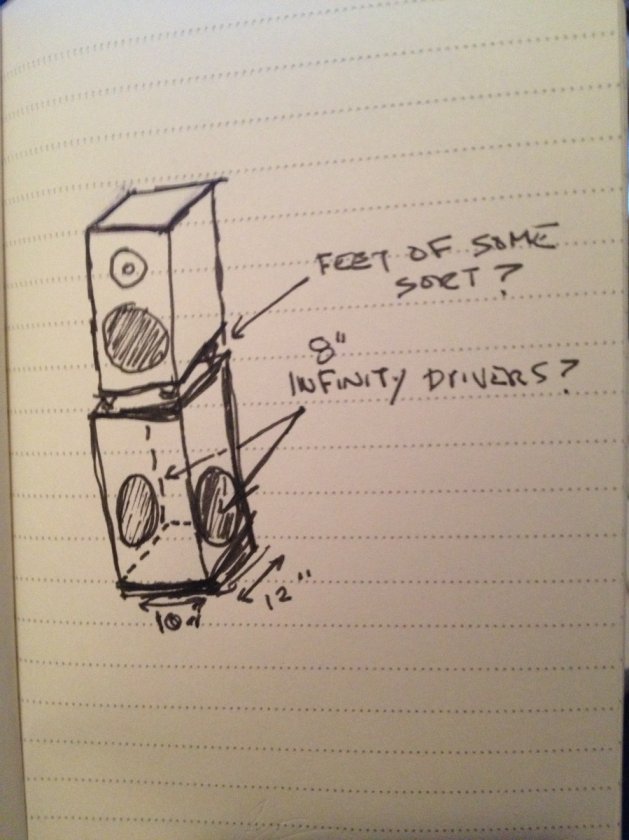 FEET OF SOME
SORT?
8"
INFINITY DRIVERS?
12"
10"